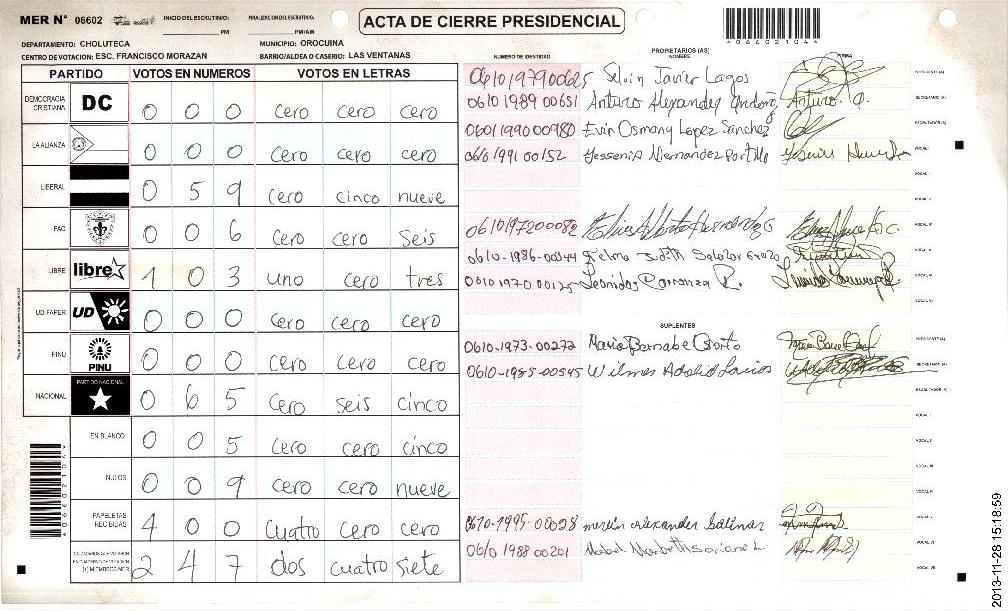 MER N° 06602
INICIO DEL ESCRUTINIO: PM
FINALIZACION DEL ESCRUTINIO: PM/AM
ACTA DE CIERRE PRESIDENCIAL
*06602104*
DEPARTAMENTO: CHOLUTECA
MUNICIPIO: OROCUINA
CENTRO DE VOTACION: ESC. FRANCISCO MORAZAN
BARRIO/ALDEA O CASERIO: LAS VENTANAS
PARTIDO VOTOS EN NUMEROS VOTOS EN LETRAS
DEMOCRACIA CRISTIANA DC 0 0 0 cero cero cero
LA ALIANZA 0 0 0 cero cero cero
LIBERAL 0 5 9 cero cinco nueve
PAC 0 0 6 cero cero seis
LIBRE libre 1 0 3 uno cero tres
UD-FAPER UD 0 0 0 cero cero cero
PINU PINU 0 0 0 cero cero cero
NACIONAL PARTIDO NACIONAL 0 6 5 cero seis cinco
EN BLANCO 0 0 5 cero cero cinco
NULOS 0 0 9 cero cero nueve
PAPELETAS RECIBIDAS 4 0 0 cuatro cero cero
2 4 7 dos cuatro siete
*06602104*
PROPIETARIOS (AS)
NUMERO DE IDENTIDAD NOMBRE FIRMA
Selvin Javier Lagos PRESIDENTE (A)
0610 1989 00651 Arturo Alexander SECRETARIO (A)
0601 1990 00980 Evin Osmany Lopez Sanchez ESCRUTADOR (A)
0610 1991 00152 Yessenia Hernandez VOCAL I
VOCAL II
VOCAL III
0610-1986-00344 Judith Salazar
0610 1970 00125 Leonidas Carranza R.
SUPLENTES
0610-1973-00272 Maria Bernabe PRESIDENTE (A)
0610-1985-00545 Wilmer Adolid SECRETARIO (A)
ESCRUTADOR (A)
VOCAL I
VOCAL II
VOCAL III
VOCAL IV
0610-1995-00028 Alexander Salinas VOCAL V
0610 1988 00201 VOCAL VI
VOCAL VII
2013-11-28 15:18:59